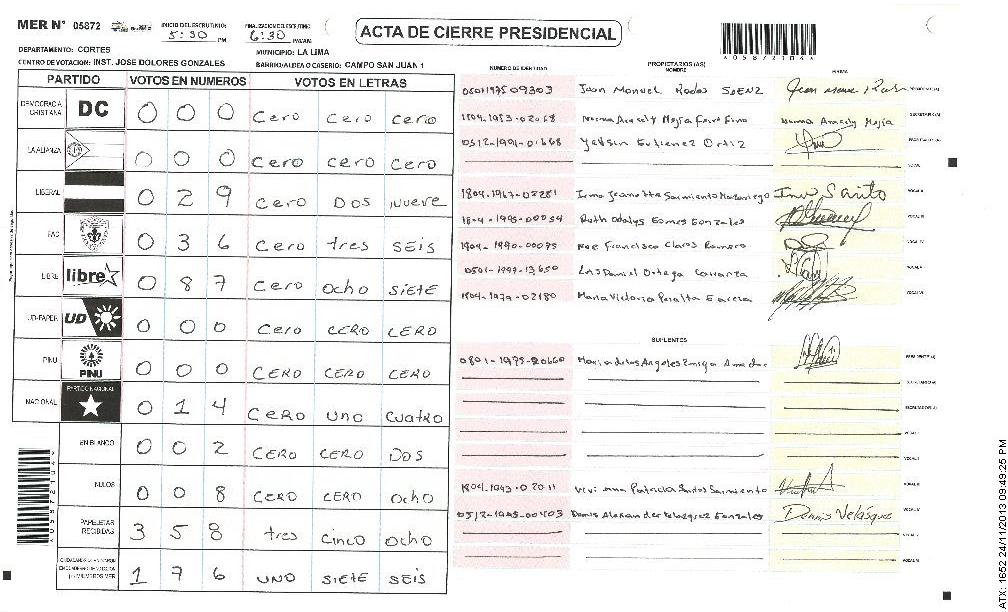 MER N° 05872
INICIO DEL ESCRUTINIO 5:30 PM
FINALIZACION DEL ESCRUTINIO 6:30 PM/AM
ACTA DE CIERRE PRESIDENCIAL
*05872104*
DEPARTAMENTO: CORTES
MUNICIPIO: LA LIMA
CENTRO DE VOTACION: INST. JOSE DOLORES GONZALES
BARRIO/ALDEA O CASERIO: CAMPO SAN JUAN 1
PARTIDO VOTOS EN NUMEROS VOTOS EN LETRAS
DEMOCRACIA CRISTIANA DC 0 0 0 Cero Cero Cero
LA ALIANZA 0 0 0 Cero cero Cero
LIBERAL 0 2 9 Cero Dos Nueve
PAC 0 3 6 Cero tres SEiS
LIBRE libre 0 8 7 Cero ocho SiETE
UD-FAPER UD 0 0 0 Cero CERO CERO
PINU PINU 0 0 0 CERO CERO CERO
NACIONAL PARTIDO NACIONAL 0 1 4 CERO UNO CUATRO
EN BLANCO 0 0 2 CERO CERO DOS
NULOS 0 0 8 CERO CERO OCHO
PAPELETAS RECIBIDAS 3 5 8 tres CINCO OCHO
1 7 6 UNO SIETE SEIS
NUMERO DE IDENTIDAD
PROPIETARIOS (AS)
NOMBRE
FIRMA
0501197509303 Juan Manuel Rodas SAENZ
1804-1983-02068 Norma Aracely Mejia Norma Aracely Mejia
0512-1991-01668 Yeison Gutierrez Ortiz
1804-1967-02281 Irma Jeanette Sarmiento
Ruth Odalys Gomes Gonzales
1804-1990-00075 Noe Francisco Claros Romero
0501-1997-13650 Daniel Ortega
1804-1979-02180 Maria Victoria Peralta Garcia
SUPLENTES
0801-1975-20660 Maria de los Angeles
1804-1993-02011 Viviana Patricia Santos Sarmiento
Denis Alexander Velasquez Gonzales Dennis Velásquez
*05872104*
ATX: 1652 24/11/2013 09:49:25 PM